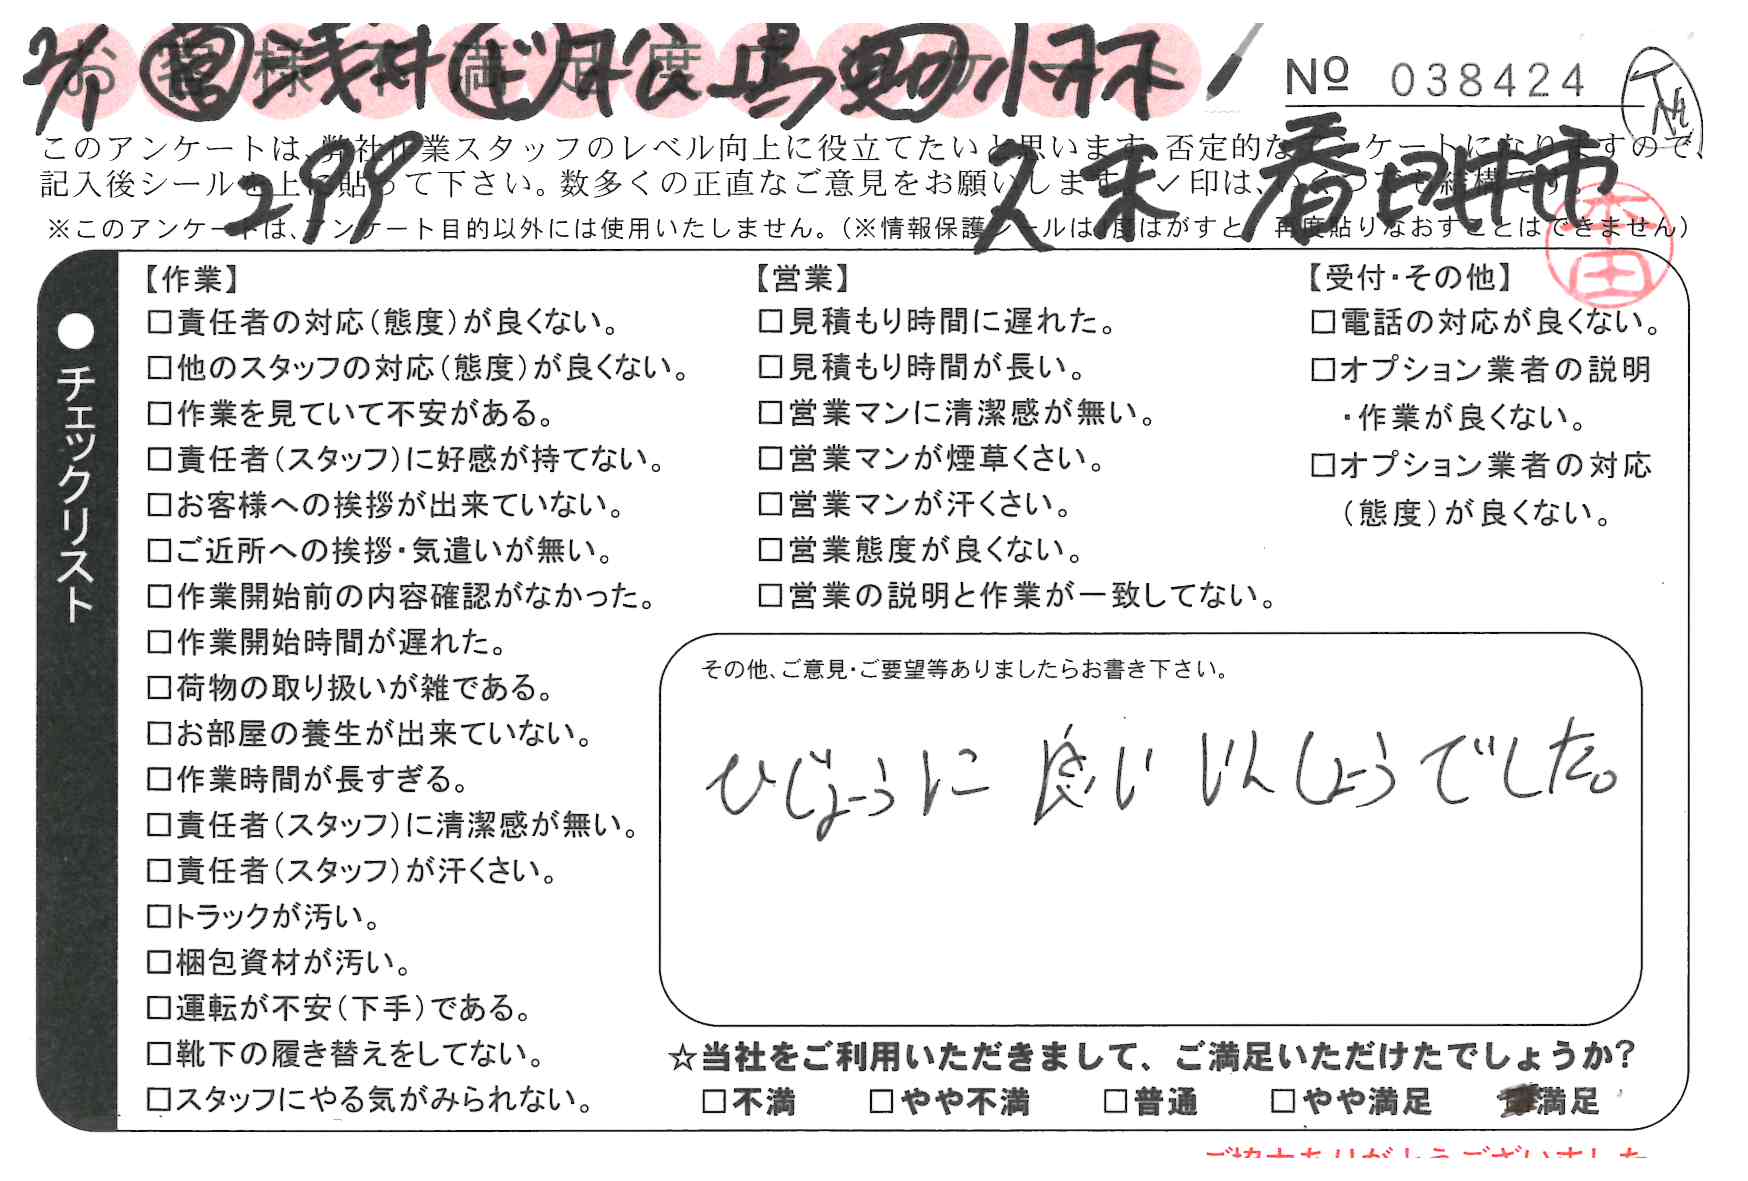 お客様不満足度アンケート
2/1 営 浅井 ビ 月 公 島 勤 小林
No 038424
このアンケートは、弊社作業スタッフのレベル向上に役立てたいと思います。否定的なアンケートになりますので、
記入後シールを上に貼って下さい。数多くの正直なご意見をお願いします。✓印は、いくつでも結構です。
299 久末 春日井市
※このアンケートは、アンケート目的以外には使用いたしません。（※情報保護シールは1度はがすと、再度貼りなおすことはできません）
本田
●チェックリスト
【作業】
□責任者の対応（態度）が良くない。
□他のスタッフの対応（態度）が良くない。
□作業を見ていて不安がある。
□責任者（スタッフ）に好感が持てない。
□お客様への挨拶が出来ていない。
□ご近所への挨拶・気遣いが無い。
□作業開始前の内容確認がなかった。
□作業開始時間が遅れた。
□荷物の取り扱いが雑である。
□お部屋の養生が出来ていない。
□作業時間が長すぎる。
□責任者（スタッフ）に清潔感が無い。
□責任者（スタッフ）が汗くさい。
□トラックが汚い。
□梱包資材が汚い。
□運転が不安（下手）である。
□靴下の履き替えをしてない。
□スタッフにやる気がみられない。
【営業】
□見積もり時間に遅れた。
□見積もり時間が長い。
□営業マンに清潔感が無い。
□営業マンが煙草くさい。
□営業マンが汗くさい。
□営業態度が良くない。
□営業の説明と作業が一致してない。
【受付・その他】
□電話の対応が良くない。
□オプション業者の説明
・作業が良くない。
□オプション業者の対応
（態度）が良くない。
その他、ご意見・ご要望等ありましたらお書き下さい。
ひじょうに 良い いんしょうでした。
☆当社をご利用いただきまして、ご満足いただけたでしょうか？
□不満 □やや不満 □普通 □やや満足 ■満足
ご協力ありがとうございました